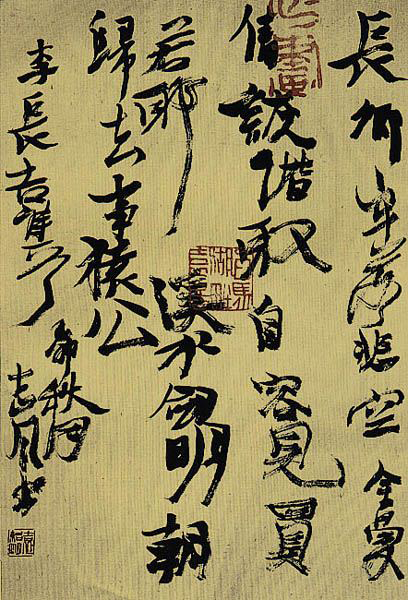 長卿牢落悲空舍曼
倩詼諧取自容見買
若耶溪水劍明朝
歸去事猿公
李長吉
秋月